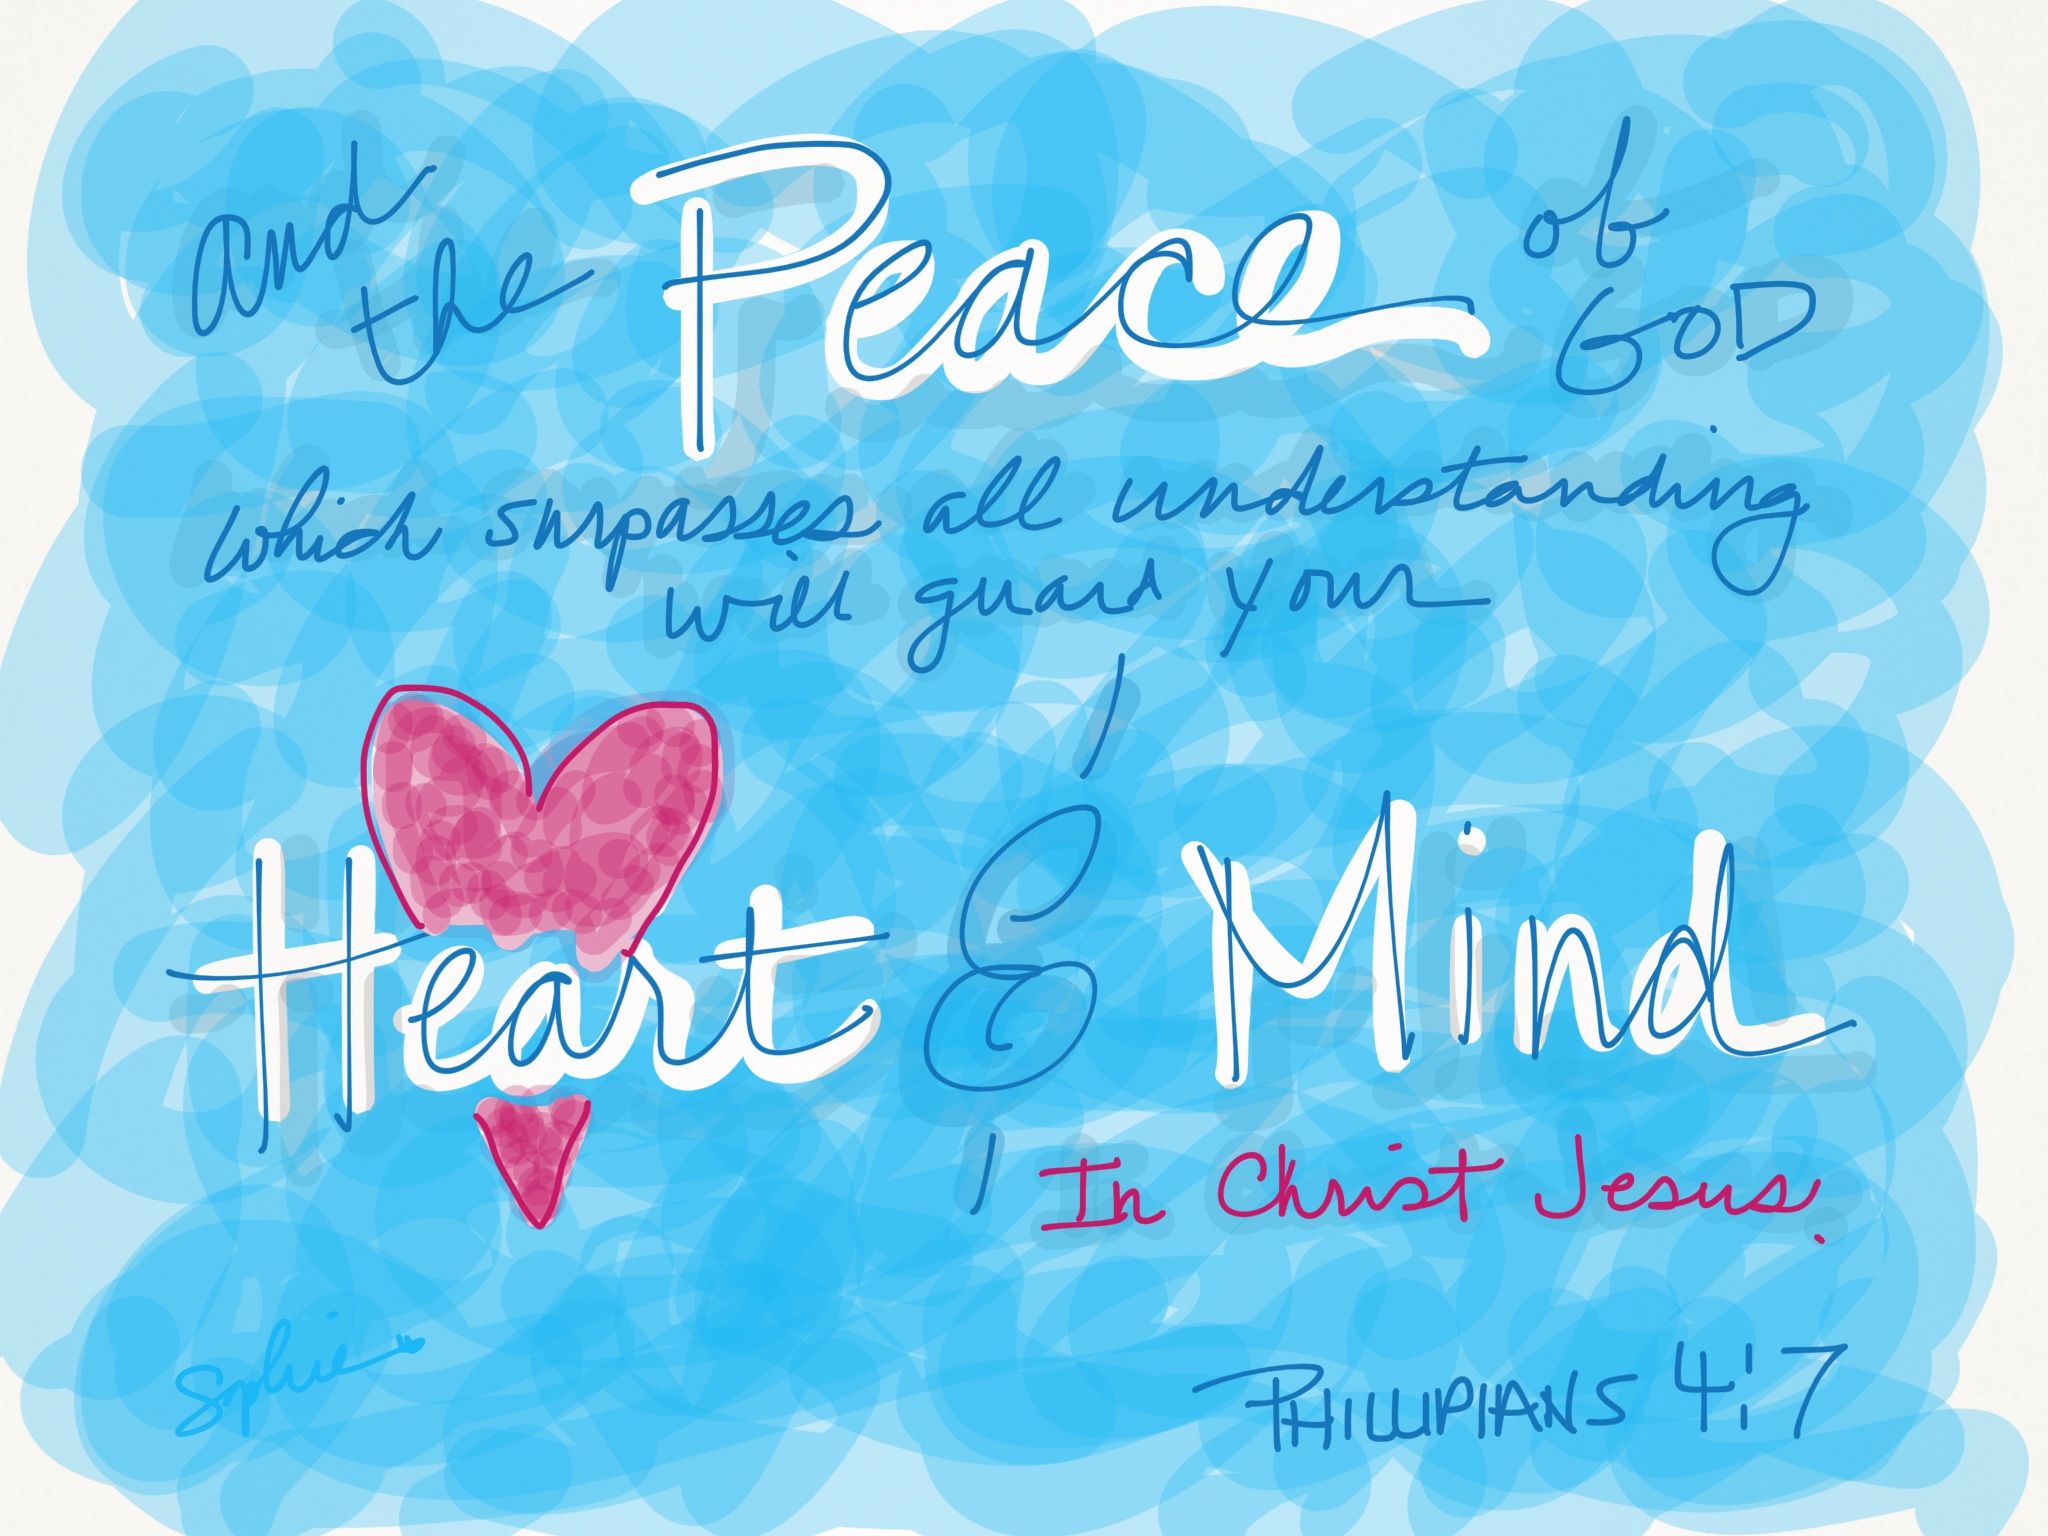 and the Peace of GOD
which surpasses all understanding
will guard your
Heart & Mind
In Christ Jesus.
Sophie
PHILLIPIANS 4:7